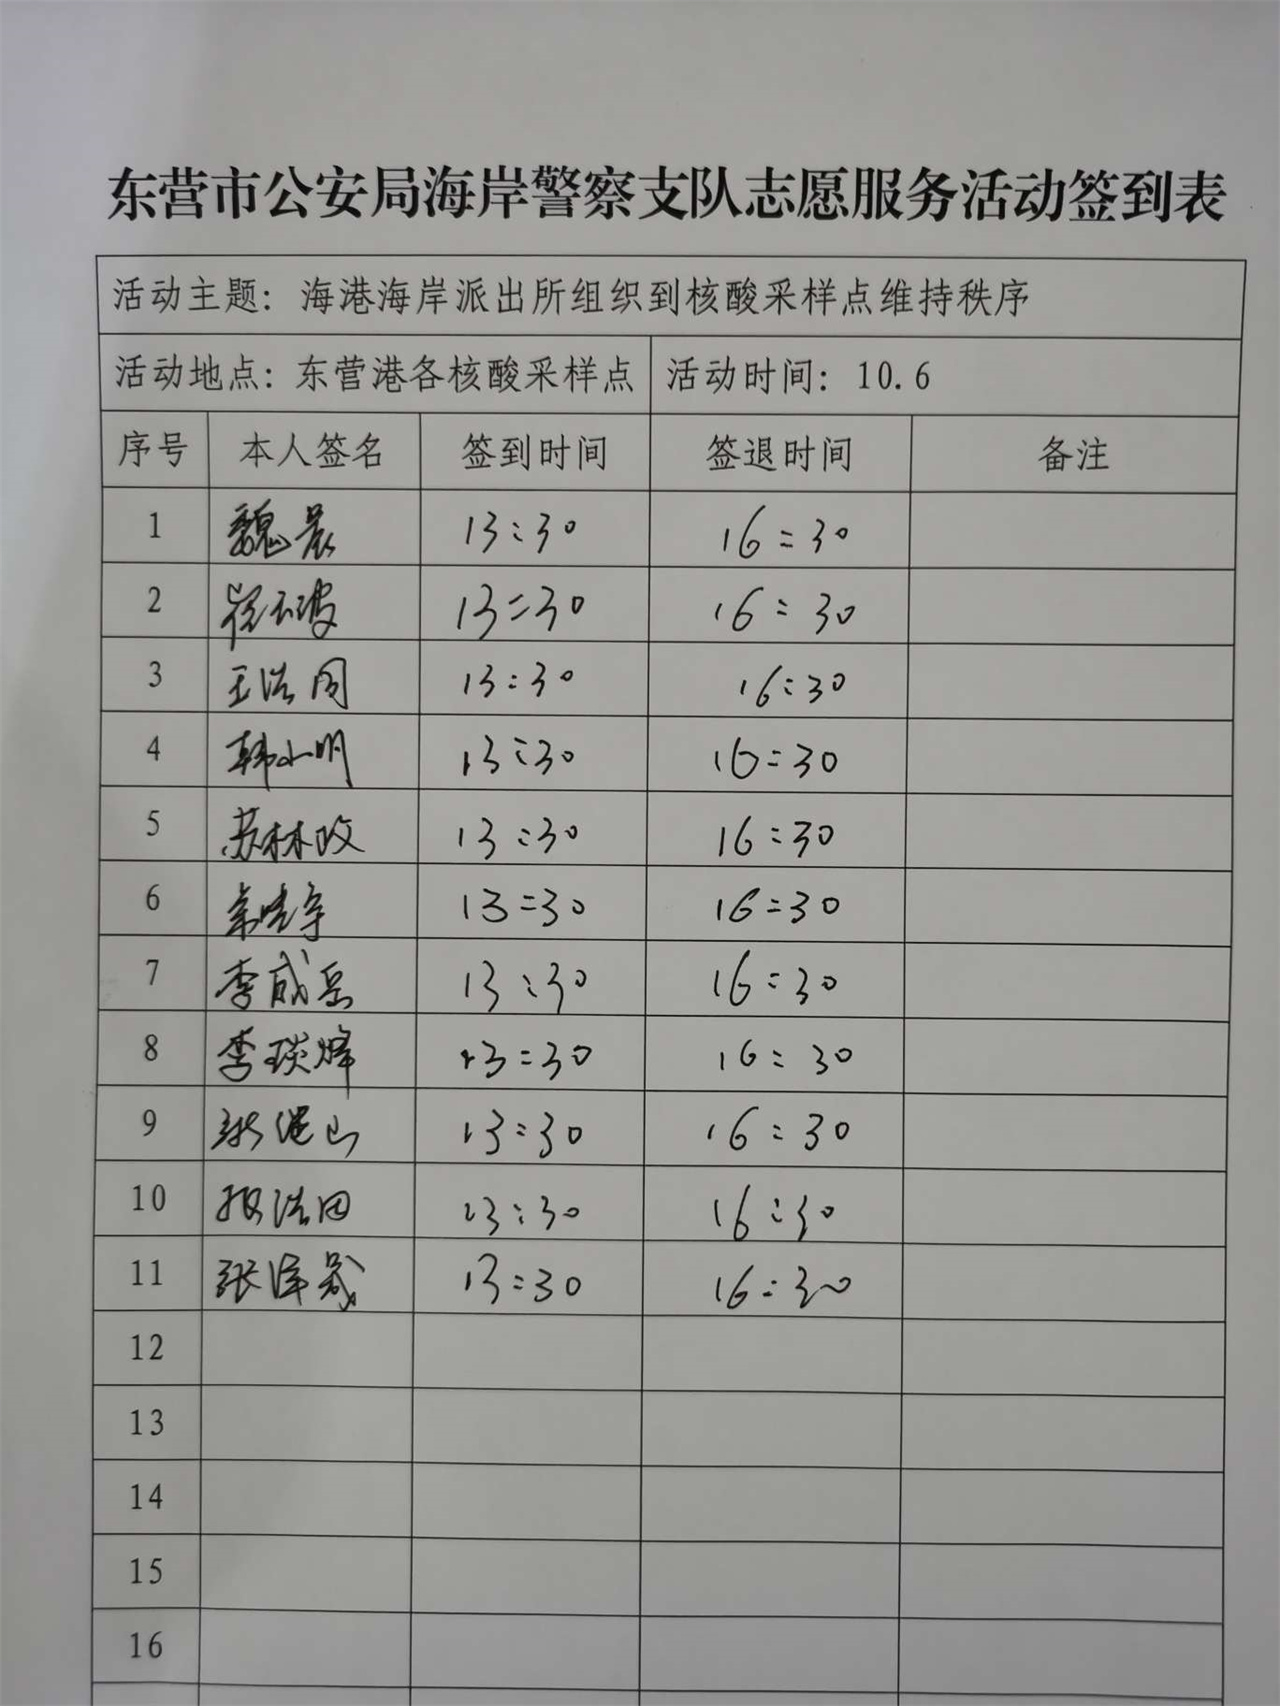 东营市公安局海岸警察支队志愿服务活动签到表
活动主题：海港海岸派出所组织到核酸采样点维持秩序
活动地点：东营港各核酸采样点 活动时间：10.6
序号 本人签名 签到时间 签退时间 备注
1 魏晨 13:30 16:30
2 13:30 16:30
3 王浩 13:30 16:30
4 韩小明 13:30 16:30
5 苏林 13:30 16:30
6 13:30 16:30
7 李成岳 13:30 16:30
8 李琰烽 13:30 16:30
9 13:30 16:30
10 13:30 16:30
11 张泽 13:30 16:30
12
13
14
15
16